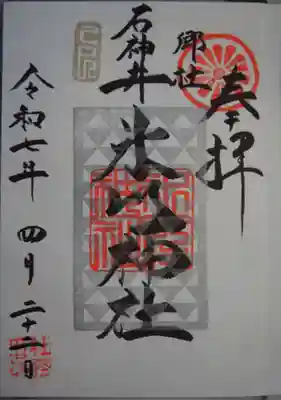 奉拝
郷社
石神井
氷川神社
令和七年 四月 二十二日